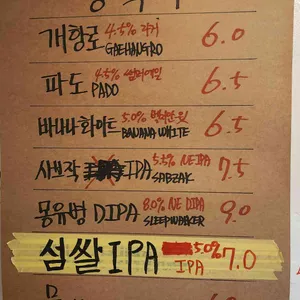 개항로 4.5% 라거 6.0
GAEHANGRO
파도 4.5% 썸머에일 6.5
PADO
바나나화이트 5.0% 6.5
BANANA WHITE
사브작 IPA 5.5% NE IPA 7.5
SABZAK
몽유병 DIPA 8.0% NE DIPA 9.0
SLEEPWALKER
섬쌀IPA 5.0% 7.0
IPA